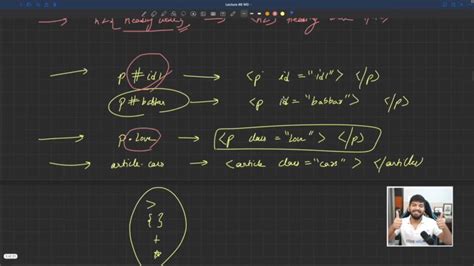 p #id1 → <p id="id1"> </p>
p#babbar → <p id="babbar"> </p>
p.love → <p class="love"> </p>
article.cars → <article class="cars"> </article>
>
{ }
+
*